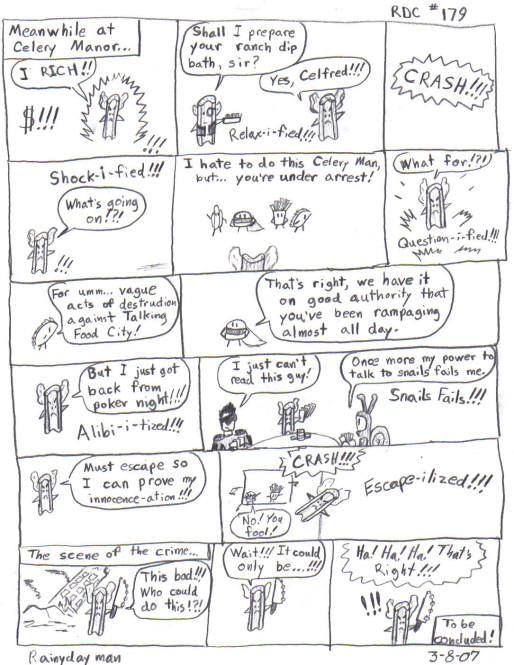 RDC #179
Meanwhile at
Celery Manor...
I RICH!!
$!!!
!!!
Shall I prepare
your ranch dip
bath, sir?
Yes, Celfred!!!
Relax-i-fied!!!
CRASH!!!
Shock-i-fied!!!
What's going
on!?!
!!!
I hate to do this Celery Man,
but... you're under arrest!
What for!?!
Question-i-fied!!!
For umm... vague
acts of destruction
against Talking
Food City!
That's right, we have it
on good authority that
you've been rampaging
almost all day.
But I just got
back from
poker night!!!
Alibi-i-tized!!!
I just can't
read this guy!
Once more my power to
talk to snails fails me.
Snails Fails!!!
Must escape so
I can prove my
innocence-ation!!!
CRASH!!!
No! You
fool!
Escape-ilized!!!
The scene of the crime...
This bad!!!
Who could
do this!?!
Wait!!! It could
only be...!!!
Ha! Ha! Ha! That's
Right!!!
!!!
To be
concluded!
Rainyday man
3-8-07